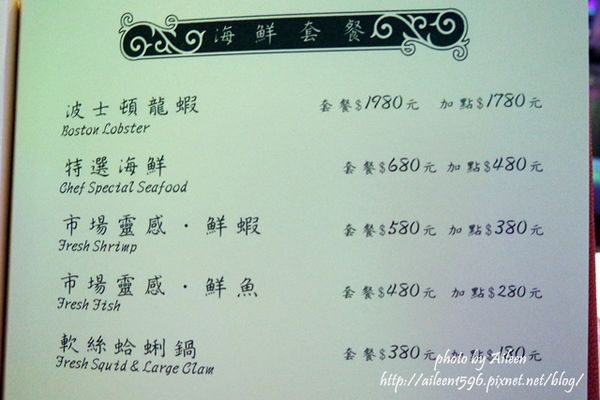 海鮮套餐
波士頓龍蝦 套餐$1980元 加點$1780元
Boston Lobster
特選海鮮 套餐$680元 加點$480元
Chef Special Seafood
市場靈感·鮮蝦 套餐$580元 加點$380元
Fresh Shrimp
市場靈感·鮮魚 套餐$480元 加點$280元
Fresh Fish
軟絲蛤蜊鍋 套餐$380元 加點$180元
Fresh Squid & Large Clam
photo by Aileen
http://aileen1596.pixnet.net/blog/